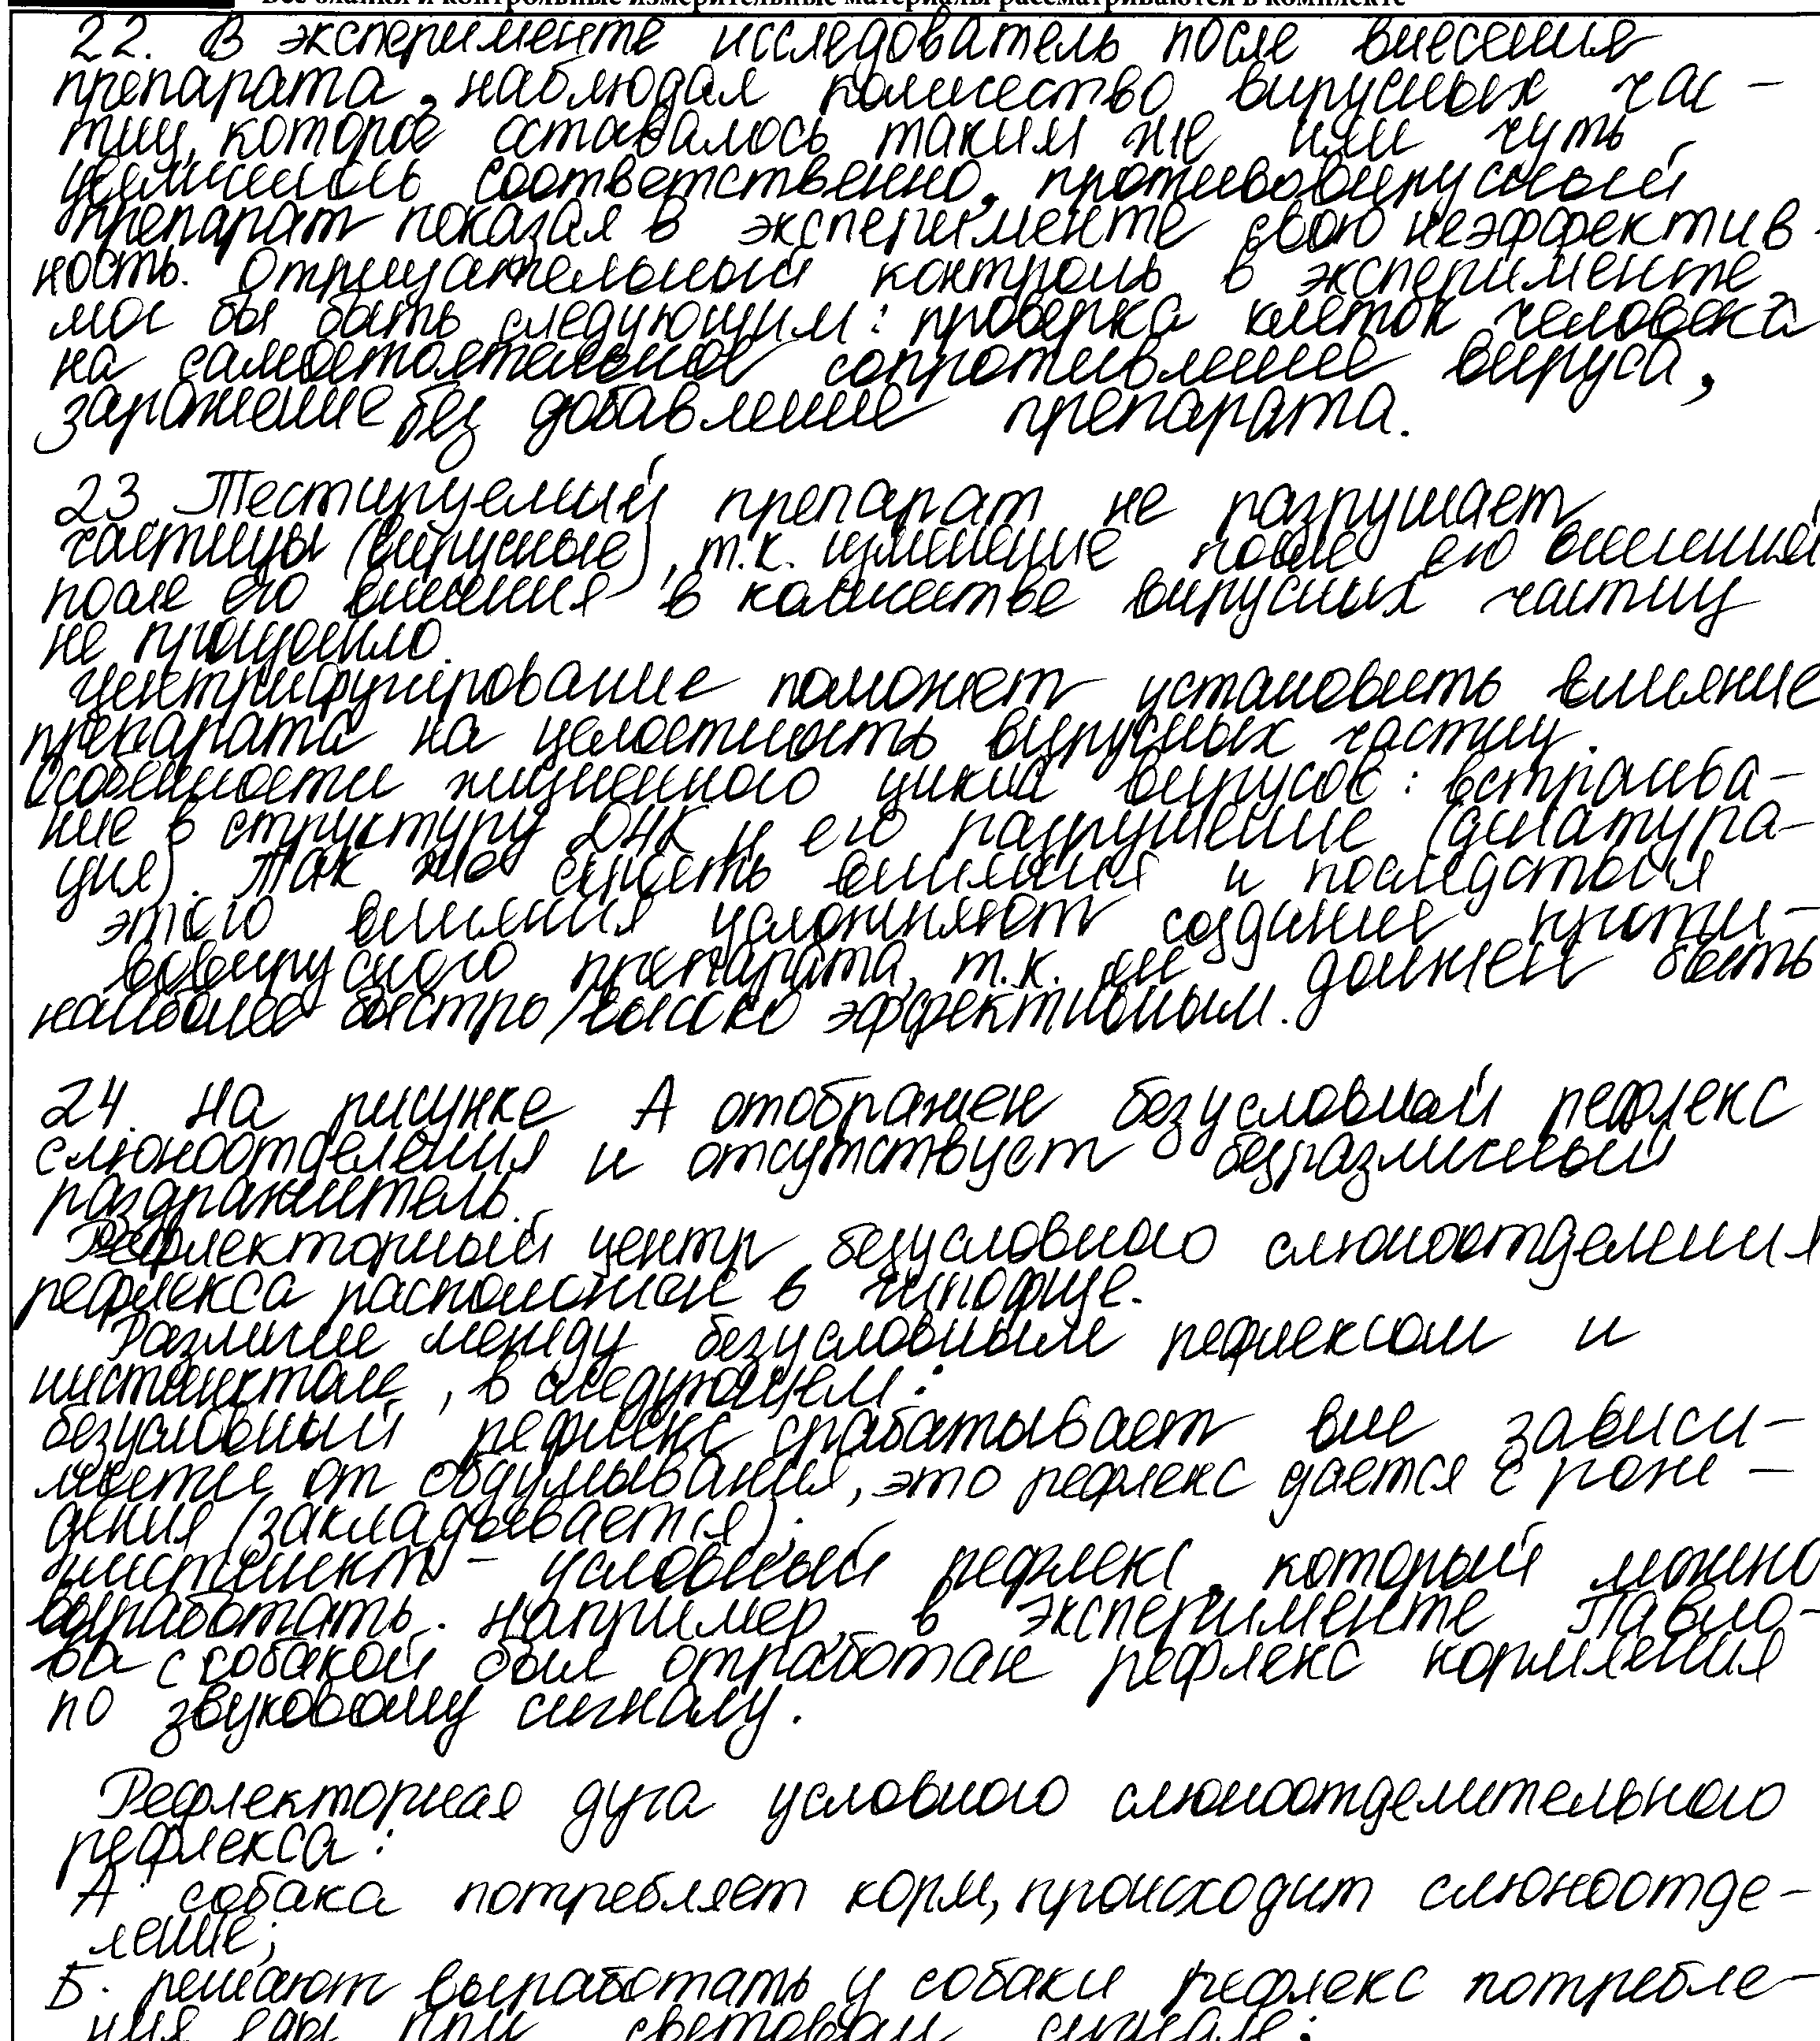 Все бланки и контрольные измерительные материалы рассматриваются в комплекте
22. В эксперименте исследователь после внесения
препарата, наблюдал количество вирусных час-
тиц, которое оставалось таким же или чуть
соответственно, противовирусный
препарат показал в эксперименте свою неэффектив-
ность. Отрицательный контроль в эксперименте
мог бы быть следующим: проверка клеток человека
на самостоятельное сопротивление вируса,
заражение без добавление препарата.
23. Тестируемый препарат не разрушает
частицы (вирусные), т.к. изменение после его
после его внесения в количестве вирусных частиц
не произошло.
Центрифугирование поможет установить влияние
препарата на целостность вирусных частиц.
Особенности жизненного цикла вирусов: встраива-
ние в структуру ДНК и его разрушение (динатура-
ция). Так же влияния и последствия
этого влияния усложняют создание проти-
вовирусного препарата, т.к. он должен быть
наиболее быстро/высоко эффективным.
24. На рисунке А отображен безусловный рефлекс
слюноотделения и отсутствует безразличный
раздражитель.
Рефлекторный центр безусловного слюноотделения
рефлекса расположен в гипофизе.
Различие между безусловным рефлексом и
инстинктом, в следующем:
безусловный рефлекс срабатывает вне зависи-
мости от обдумывания, это рефлекс дается с рож-
дения (закладывается);
инстинкт - условный рефлекс, который можно
выработать. Например, в эксперименте Павло-
ва с собакой был отработан рефлекс кормления
по звуковому сигналу.
Рефлекторная дуга условного слюноотделительного
рефлекса:
А собака потребляет корм, происходит слюноотде-
ление;
Б. решают выработать у собаки рефлекс потребле-
ния еды при световом сигнале;